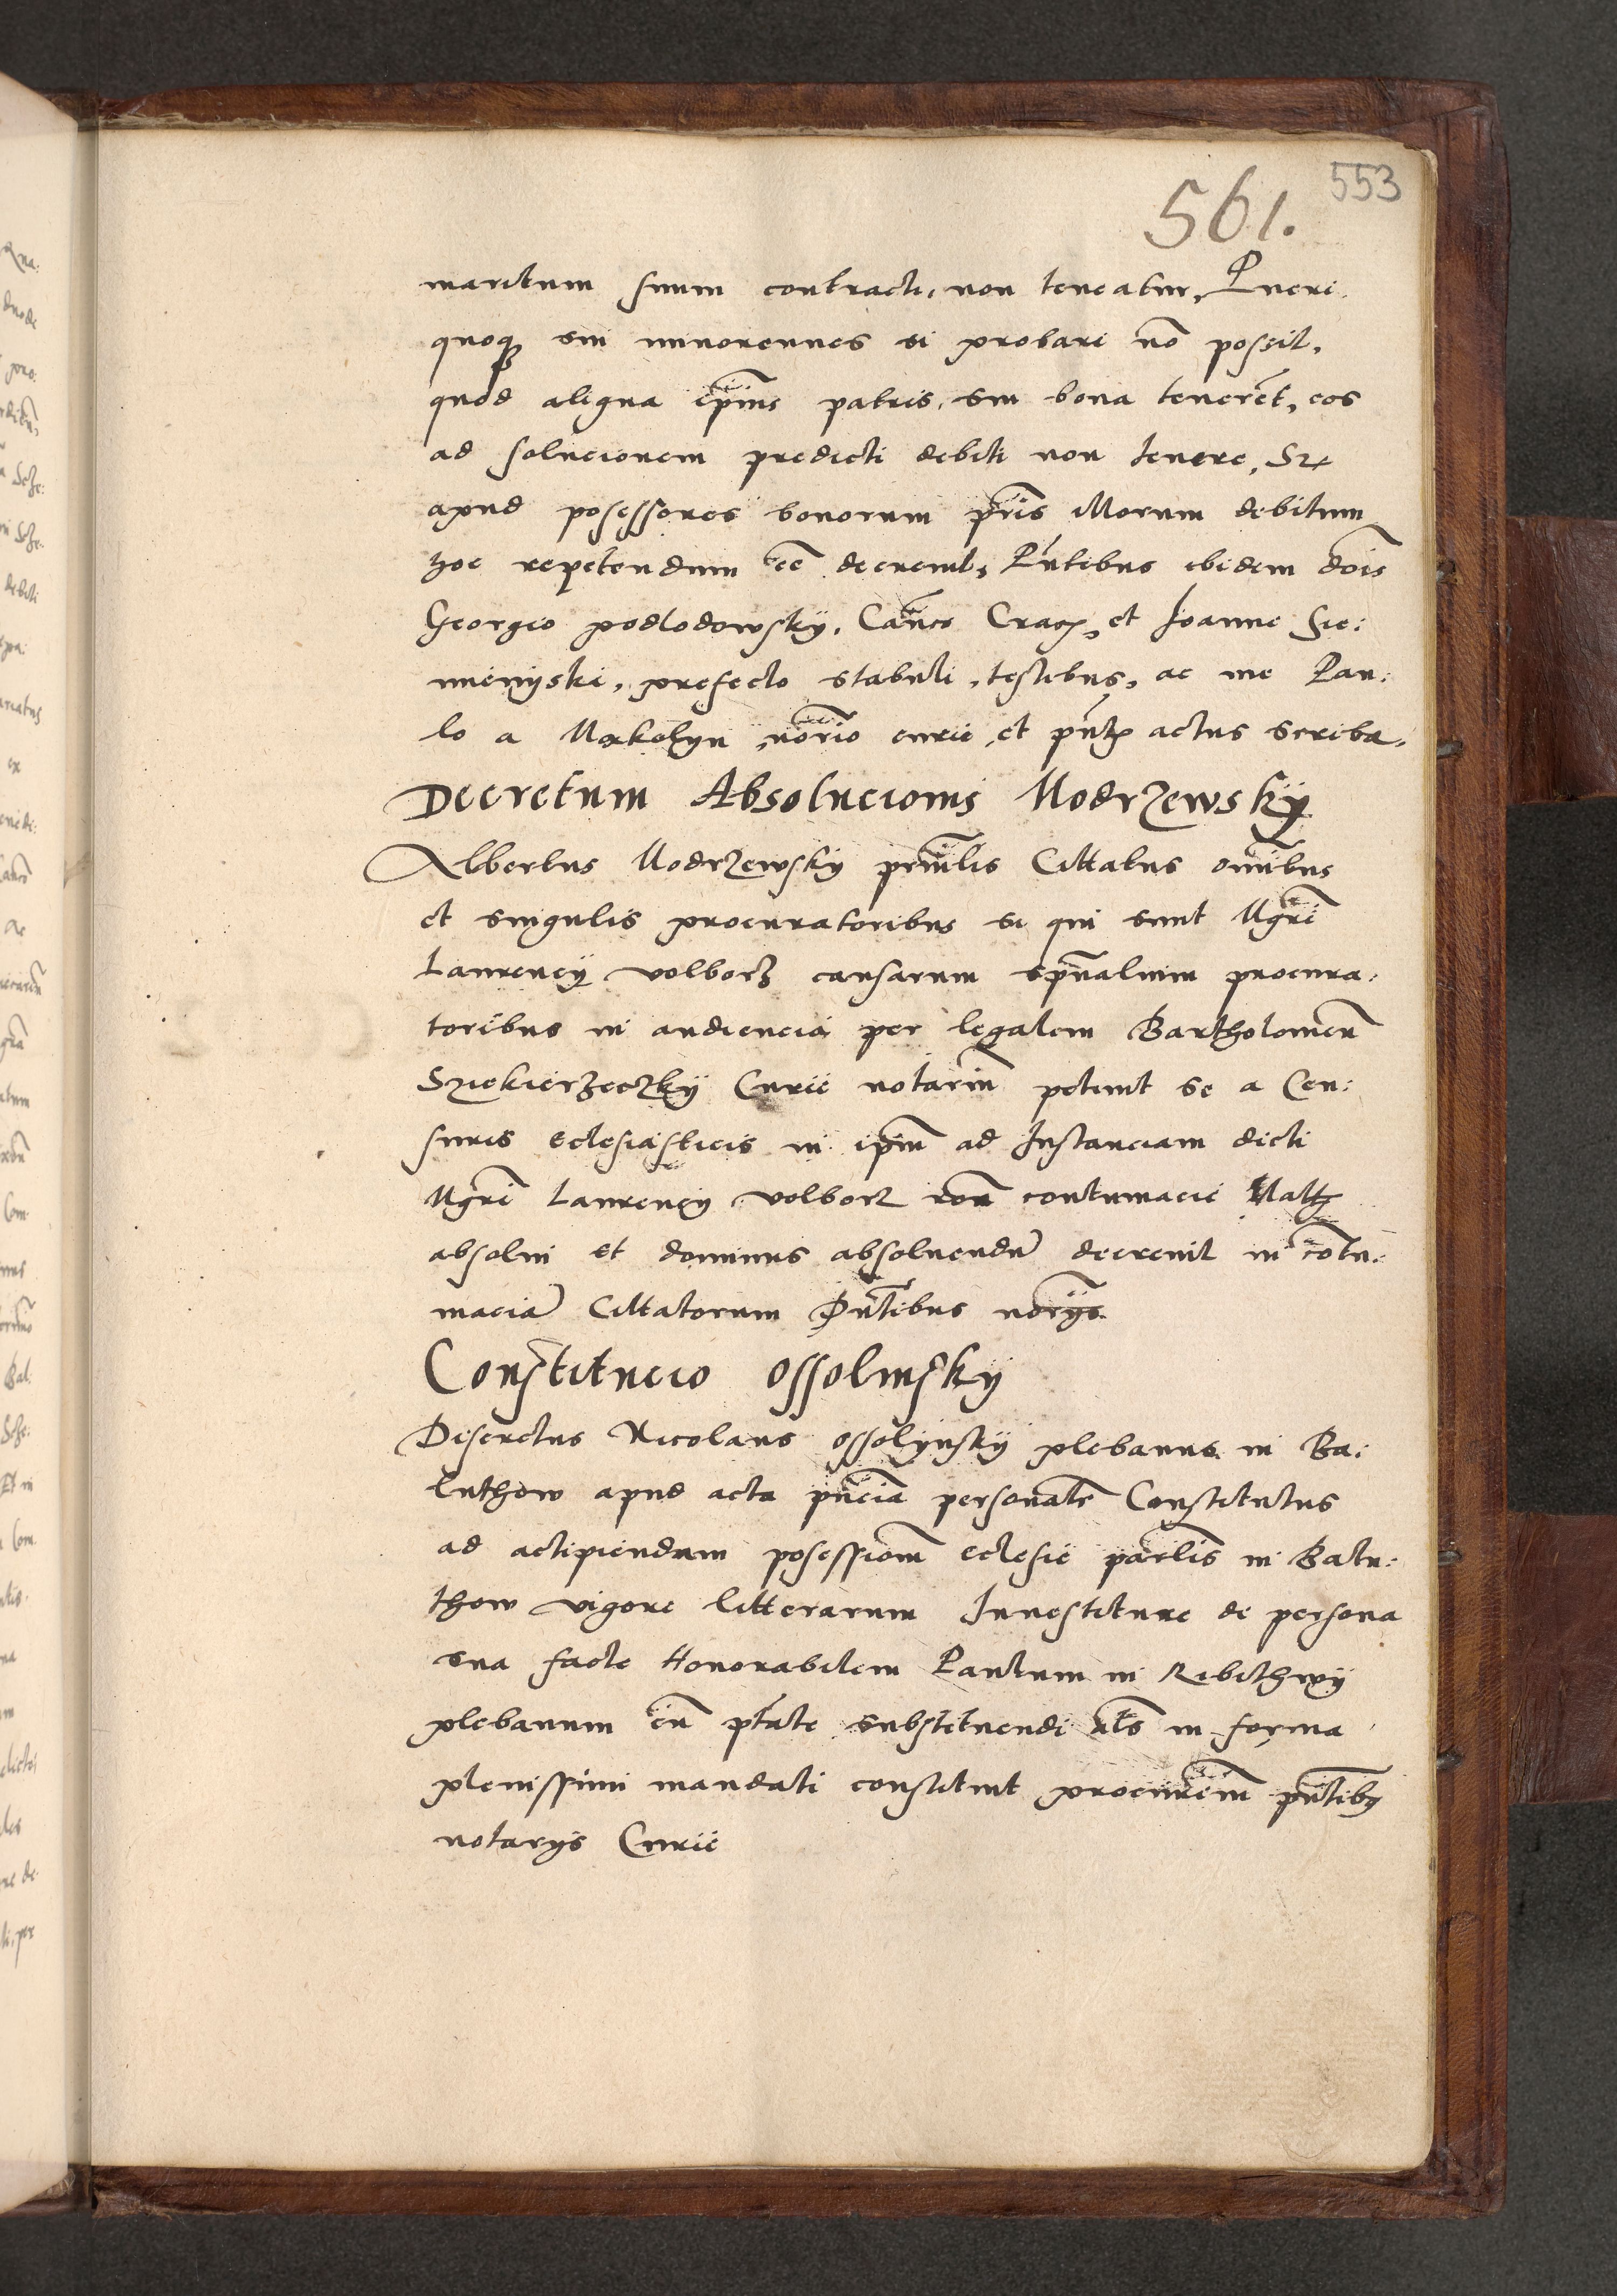 553
561.
maritum suum contracti, non teneatur, Pueri
quoq sui minorennes si probari nō possit,
quod aliqua ipīus patris sui bona tenerēt, eos
ad solucionem predicti debiti non tenere, Sz
apud posessores bonorum pris Morum debitum
hoc repetendum eē decrevit, Pntibus ibidem dōis
Georgio podlodowsky, Canco Crac, et Joanne Sie:
mienyski, prefecto stabuli, testibus, ac me Pau:
lo a Makolyn, norio curie, et pntz actus scriba.
Decretum Absolucionis Modrzewsky
Albertus Modrzewsky prinlis Cittatus omibus
et singulis procuratoribus si qui sunt Mgri
Laurency volborz causarum spūalium procura:
toribus in audiencia per legalem Bartholomeū
Sziekierzeczky Curie notariū petiuit se a Cen:
suris eclesiasticis in ipm ad Instanciam dicti
Mgri Laurency volborz rōn contumacie
absolui et dominus absoluendū decreuit in cōtu:
maciā Cittatorum Pntibus norys
Constitucio Ossolinsky
Discretus Nicolaus ossolynsky plebanus in Ba:
luthow apud acta pncia personalr Constitutus
ad actipiendum posessionē eclesie parlis in Balu:
thow vigore litterarum Inuestiture de persona
sua facte Honorabilem Paulum in Rebithwy
plebanum cū ptate substituendi als in forma
plenissimi mandati constituit procurem pntibz
notarys Curie